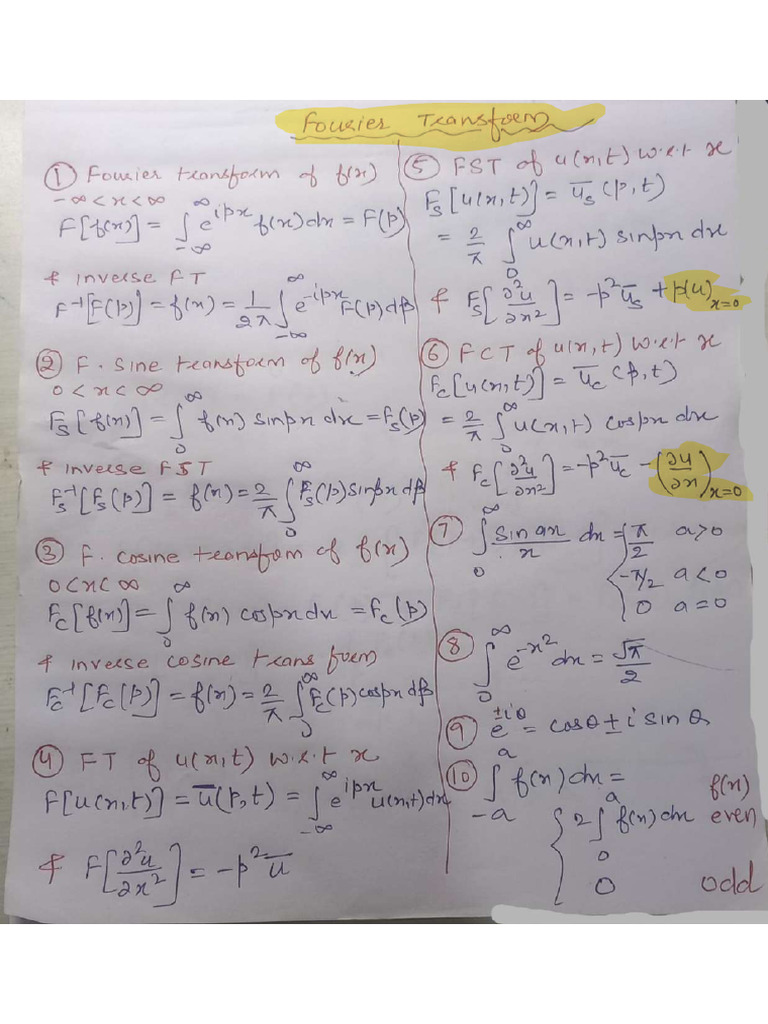 Fourier Transform
① Fourier transform of f(x)
-∞ < x < ∞
F[f(x)] = ∫_{-∞}^{∞} e^{ipx} f(x) dx = F(p)
& inverse FT
F⁻¹[F(p)] = f(x) = 1/2π ∫_{-∞}^{∞} e^{-ipx} F(p) dp
② F. Sine transform of f(x)
0 < x < ∞
F_s[f(x)] = ∫_0^∞ f(x) sinpx dx = F_s(p)
& inverse FST
F_s⁻¹[F_s(p)] = f(x) = 2/π ∫_0^∞ F_s(p) sinpx dp
③ F. cosine transfom of f(x)
0 < x < ∞
F_c[f(x)] = ∫_0^∞ f(x) cospx dx = F_c(p)
& inverse cosine trans form
F_c⁻¹[F_c(p)] = f(x) = 2/π ∫_0^∞ F_c(p) cospx dp
④ FT of u(x,t) w.r.t x
F[u(x,t)] = ū(p,t) = ∫_{-∞}^{∞} e^{ipx} u(x,t) dx
& F[∂²u/∂x²] = -p² ū
⑤ FST of u(x,t) w.r.t x
F_s[u(x,t)] = ū_s(p,t)
= 2/π ∫_0^∞ u(x,t) sinpx dx
& F_s[∂²u/∂x²] = -p² ū_s + p(u)_{x=0}
⑥ FCT of u(x,t) w.r.t x
F_c[u(x,t)] = ū_c(p,t)
= 2/π ∫_0^∞ u(x,t) cospx dx
& F_c[∂²u/∂x²] = -p² ū_c - (∂u/∂x)_{x=0}
⑦ ∫_0^∞ sin ax/x dx = { π/2 a>0
-π/2 a<0
0 a=0
⑧ ∫_0^∞ e^{-x²} dx = √π/2
⑨ e^{±iθ} = cosθ ± i sin θ
⑩ ∫_{-a}^{a} f(x) dx = f(x)
{ 2∫_0^a f(x) dx even
0 odd